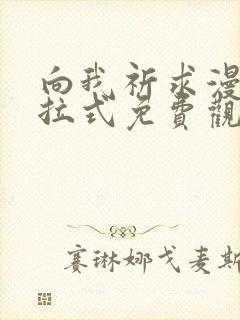 向我祈求漫
拉式免費觀
赛琳娜戈麦斯